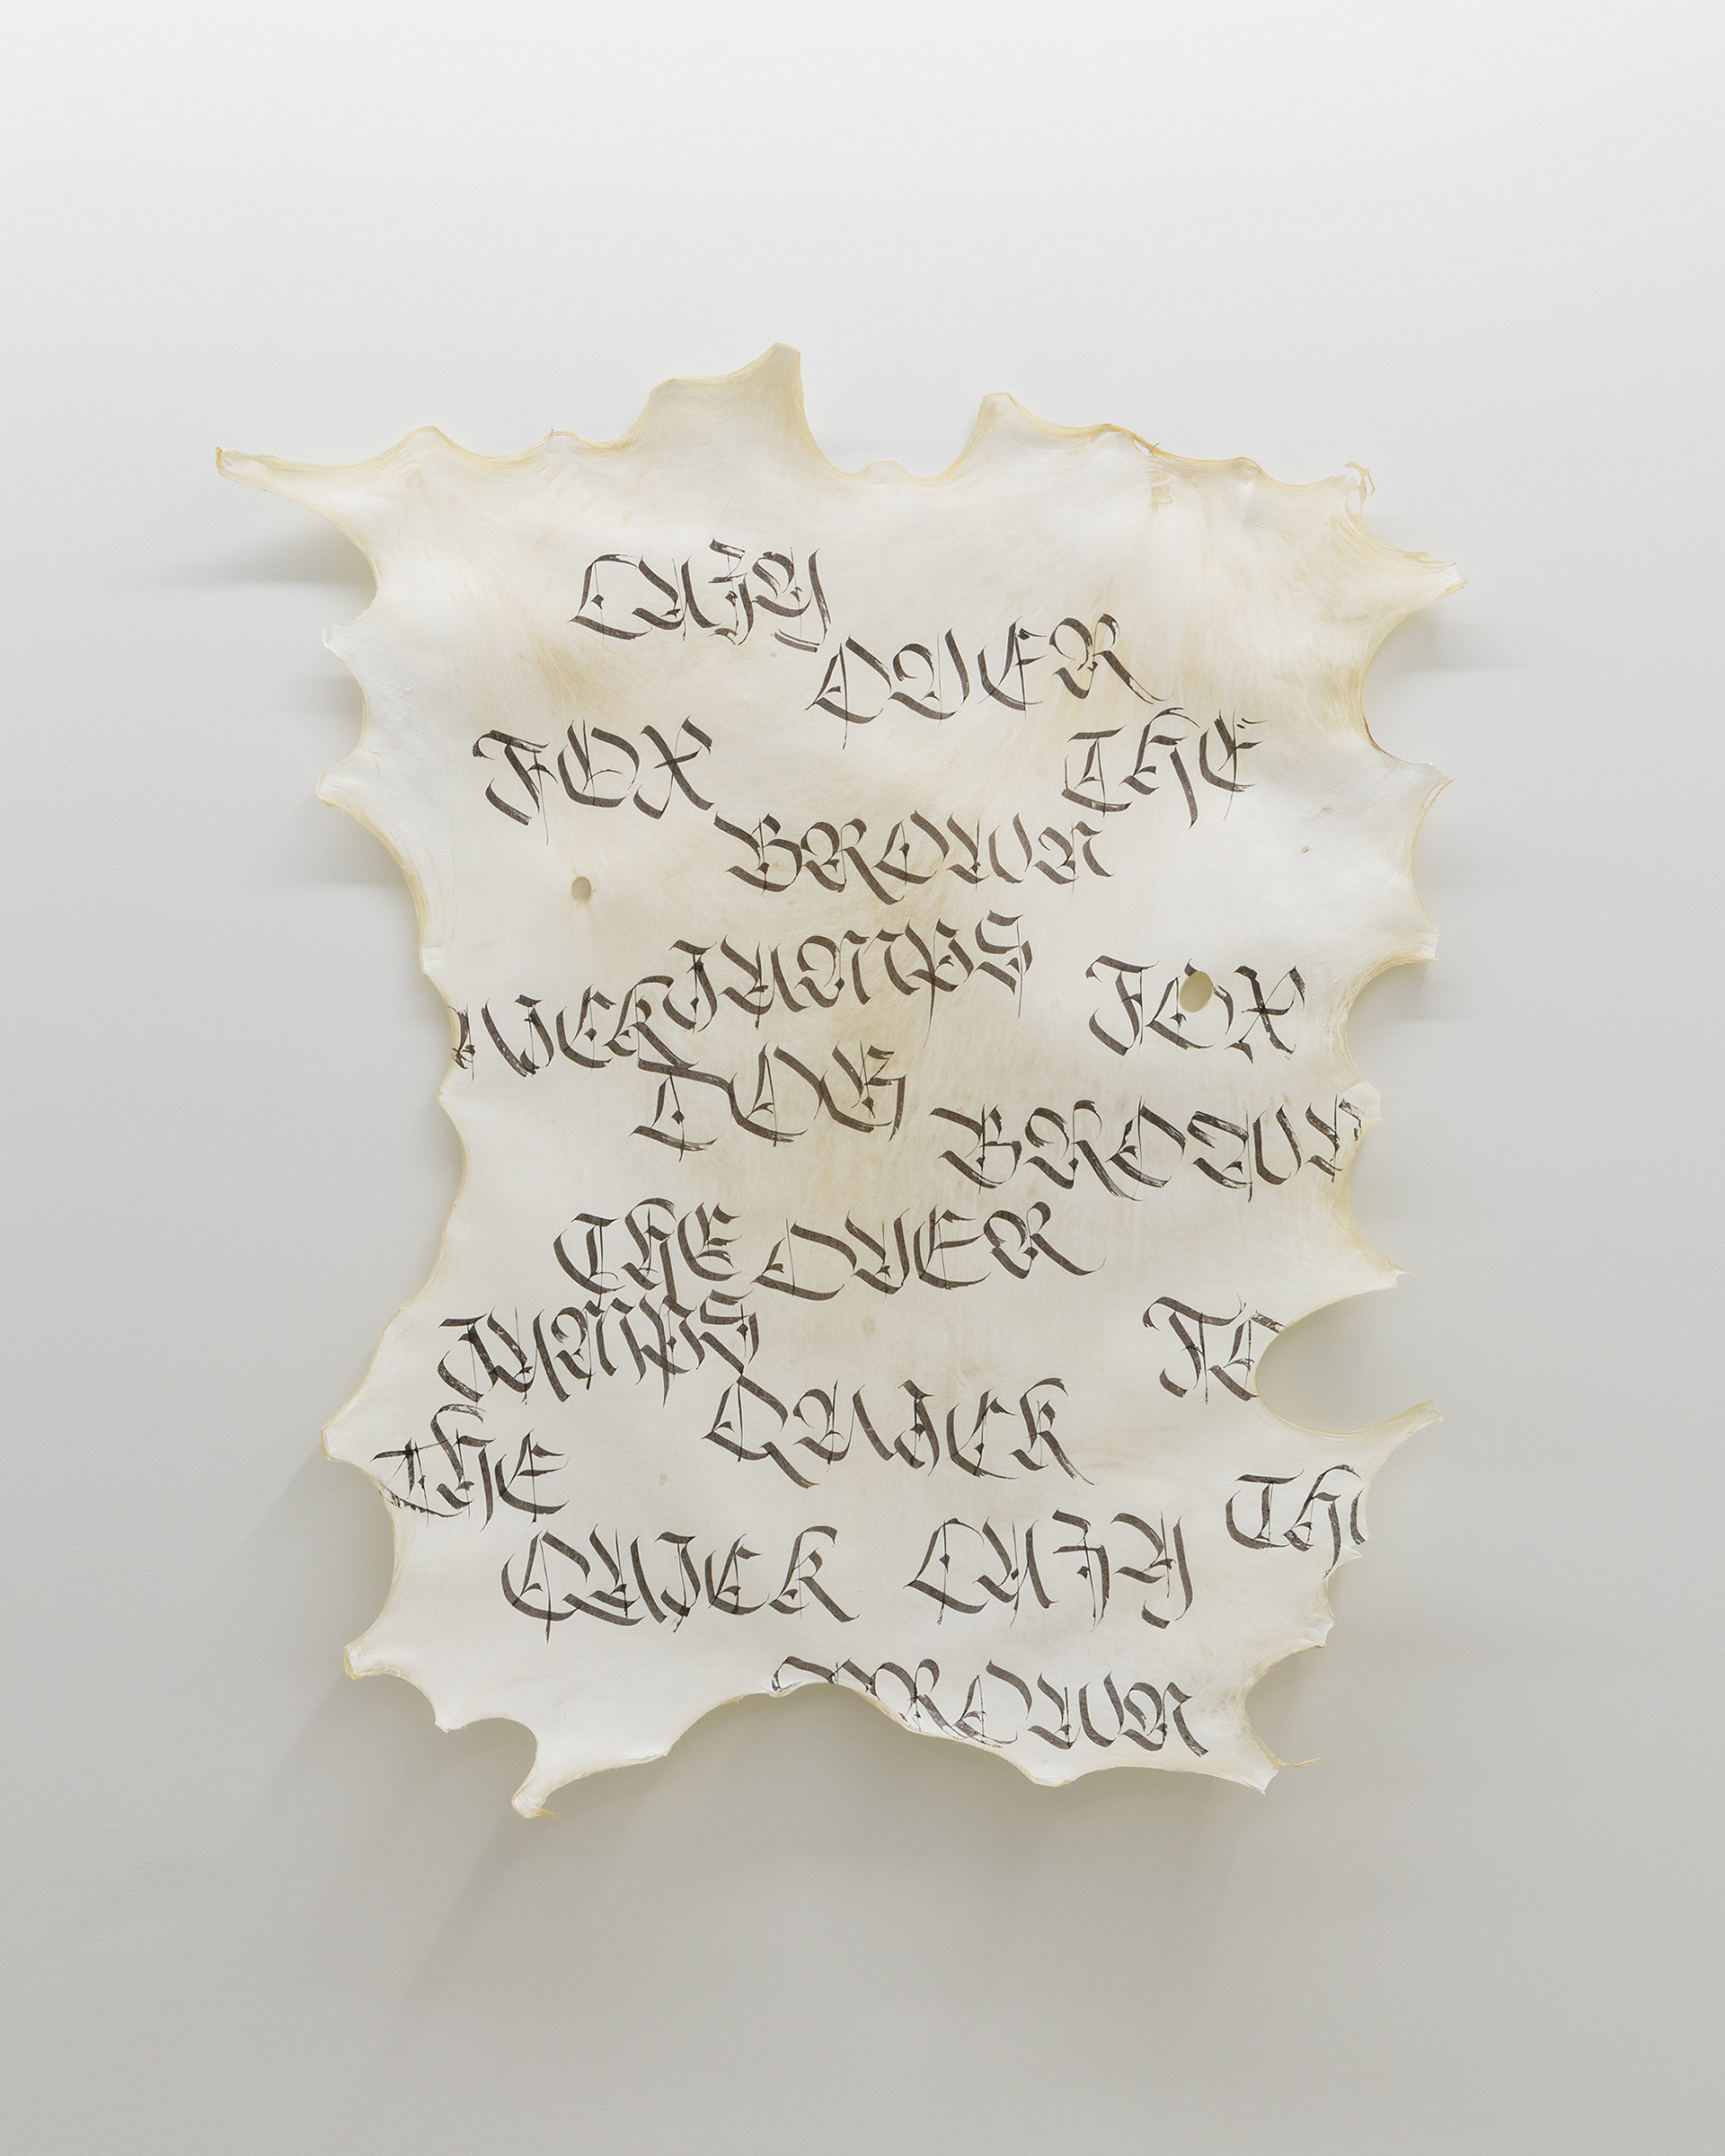 LAZY
OVER
FOX THE
BROWN
JUMPS
UICK FOX
DOG
BROWN
THE OVER
JUMPS FO
QUICK
THE
TH
QUICK LAZY
BROWN